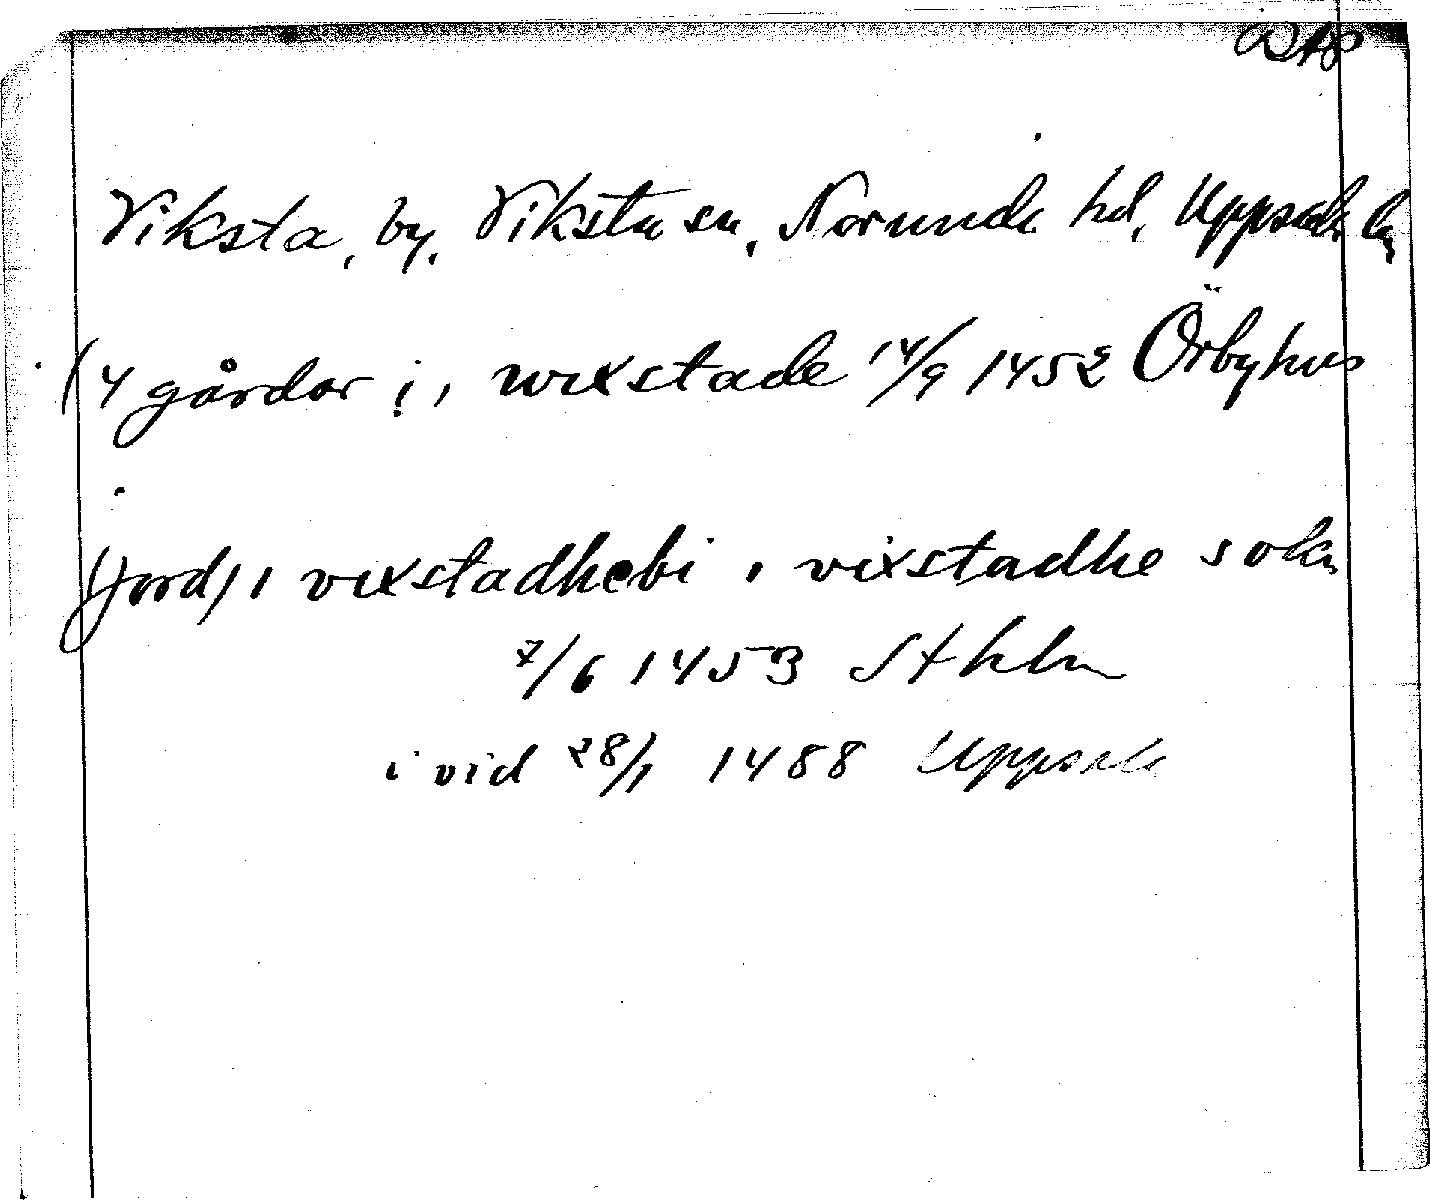 Viksta, by, Viksta sn, Norunda hd, Uppsala ln
(4 gårdar i, wixstade 14/9 1452 Örbyhus
(jord) i vixstadhebi i vixstadhe sokn
7/6 1453 Sthlm
i vid 28/1 1488 Uppsala